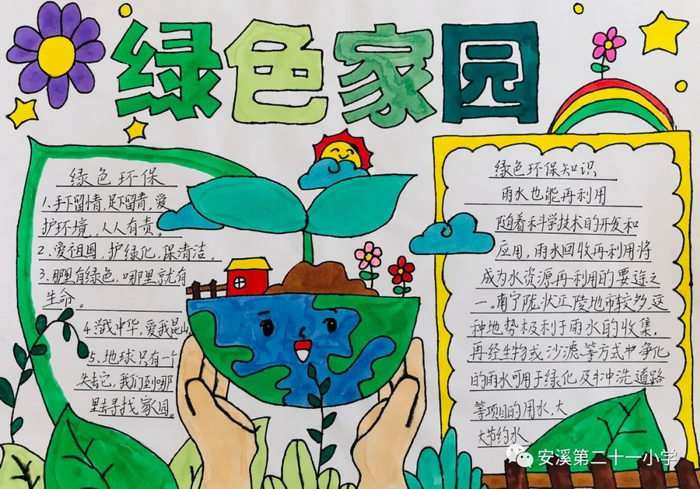 绿色家园
绿色环保
1.手下留情,足下留青,爱
护环境,人人有责。
2、爱祖国,护绿化,保清洁,
3、哪里有绿色,哪里就有
生命。
中华,爱我
5、地球只有一个
失去它,我们到哪
里去寻找家园。
绿色环保知识
雨水也能再利用
随着科学技术的开发和
应用,雨水回收再利用将
成为水资源再利用的要途之
一。南宁
种地势极利于雨水的收集,
再经生物或沙滤等方式中净化
的雨水可用于绿化及冲洗道路
等项目的用水,大
大节约水
安溪第二十一小学